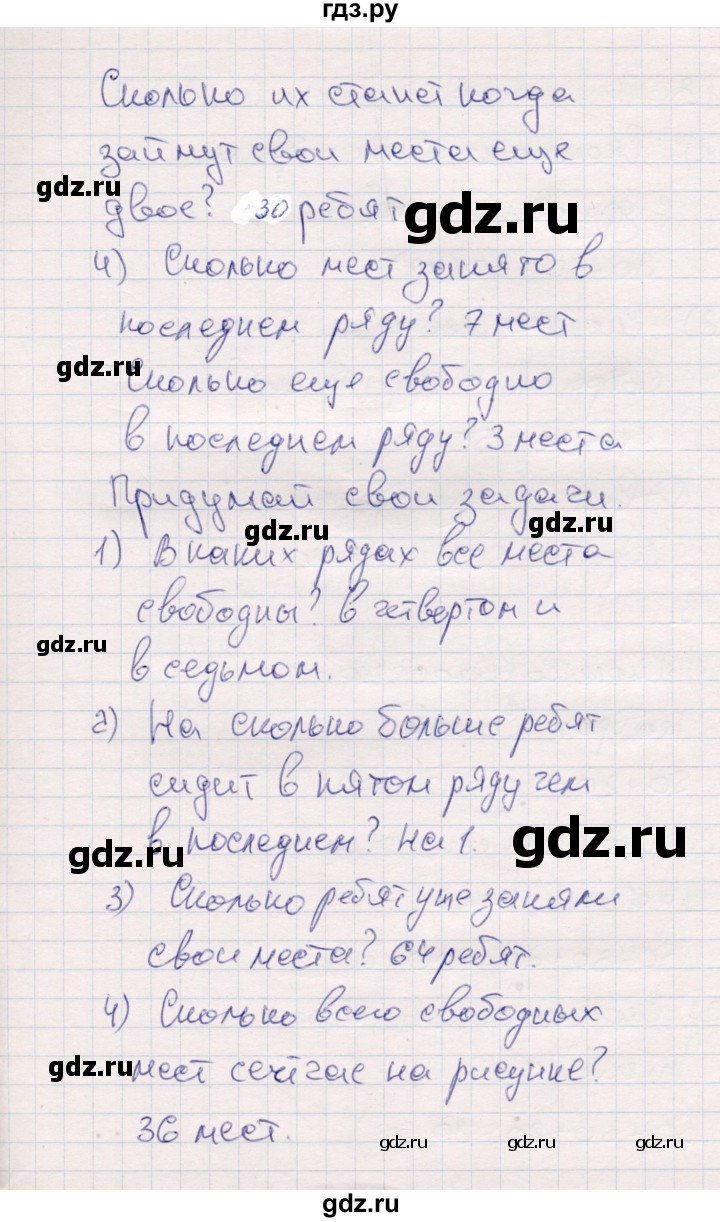 гдз.ру
Сколько их станет когда
займут свои места еще
gdz.ru
двое? 30 ребят
gdz.ru
4) Сколько мест занято в
последнем ряду? 7 мест
gdz.ru
Сколько еще свободно
в последнем ряду? 3 места
Придумай свои задачи.
gdz.ru
gdz.ru
1) В каких рядах все места
свободны? в четвертом и
gdz.ru
в седьмом.
2) На сколько больше ребят
сидит в пятом ряду чем
в последнем? на 1.
gdz.ru
gdz.ru
3) Сколько ребят уже заняли
свои места? 64 ребят.
4) Сколько всего свободных
gdz.ru
мест сейчас на рисунке?
36 мест.
gdz.ru
gdz.ru
gdz.ru
gdz.ru